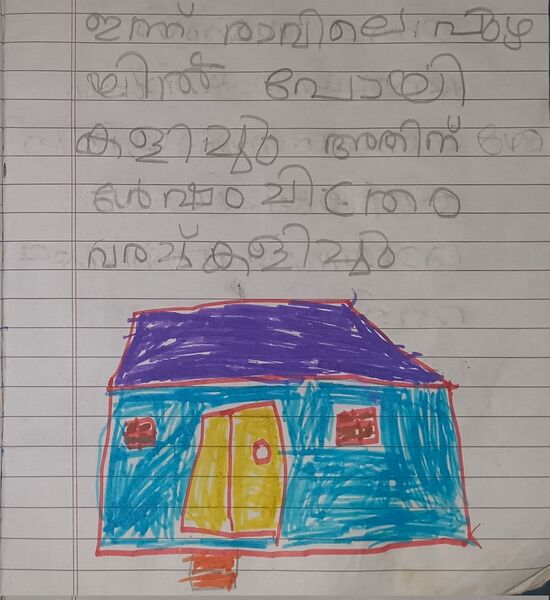 ഇന്ന് രാവിലെ പുഴ
യിൽ പോയി
കളിച്ചു അതിന് ശേ
ഷം ചിത്രം
വരച്ച് കളിച്ചു